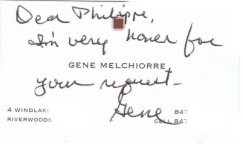 Dear Philippe,
I'm very honor for
GENE MELCHIORRE
your request-
4 WINDLAKE
RIVERWOODS
Gene
847
CELL 847